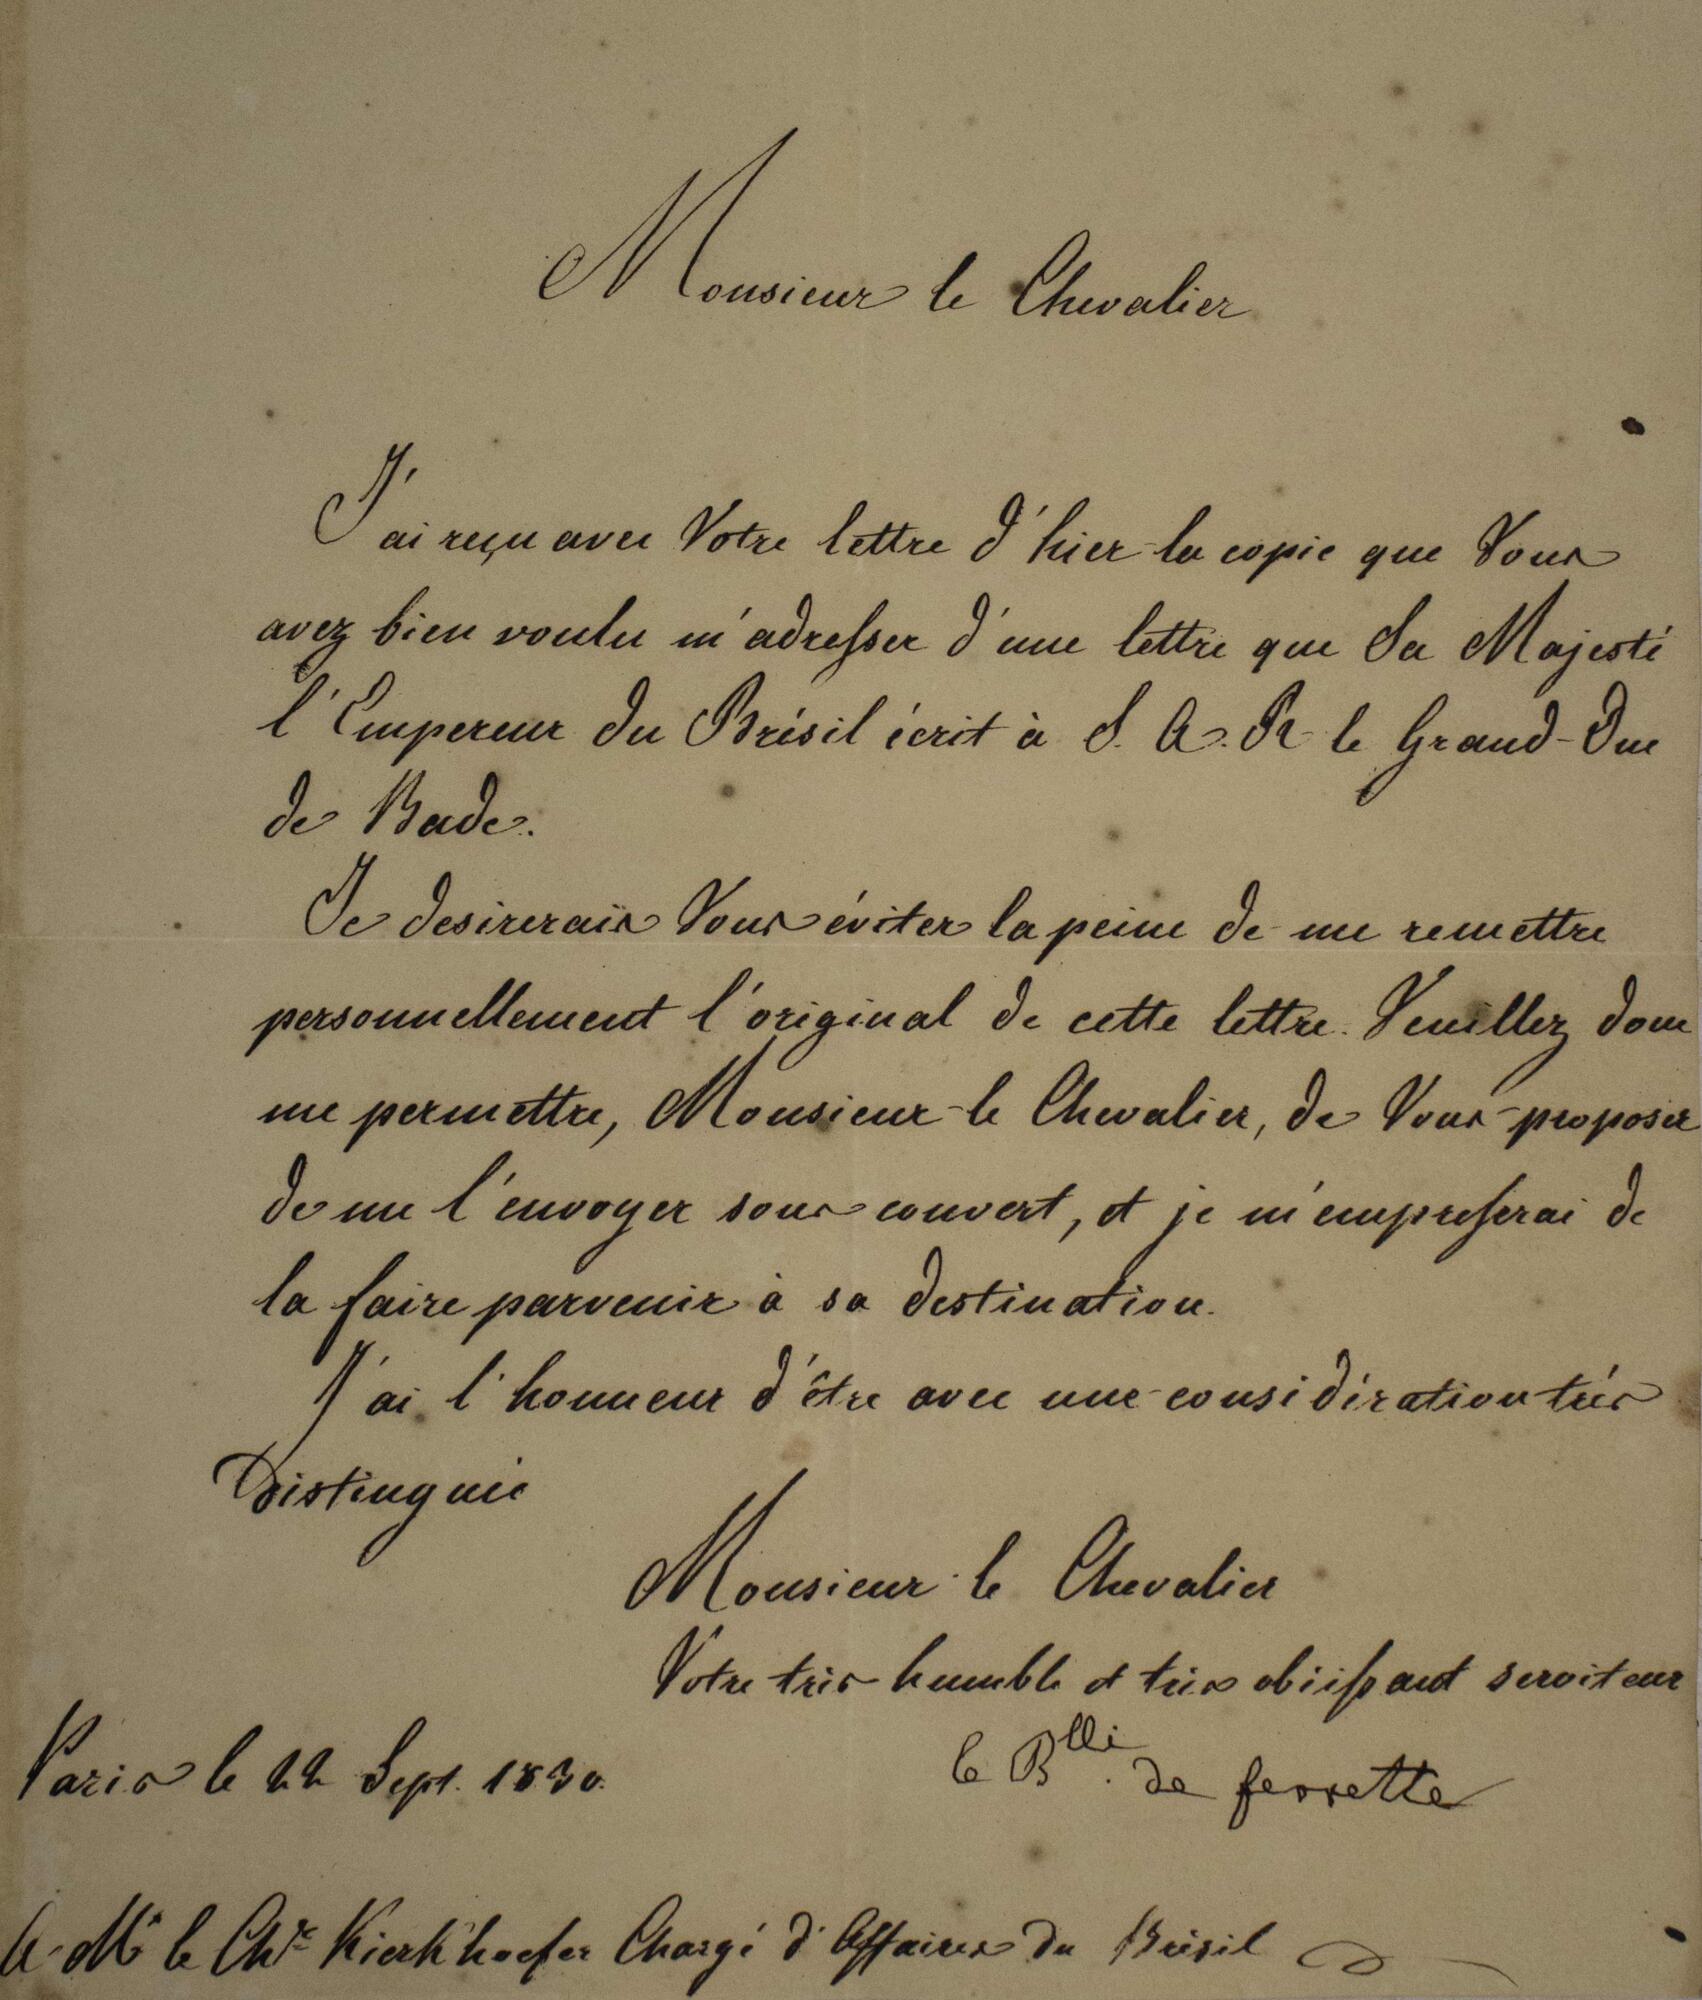 Monsieur le Chevalier
J'ai reçu avec Votre lettre d'hier la copie que Vous
avez bien voulu m'adresser d'une lettre que Sa Majesté
l'Empereur du Brésil écrit à S. A. R. le Grand-Duc
de Bade.
Je desirerais Vous éviter la peine de me remettre
personnellement l'original de cette lettre. Veuillez donc
me permettre, Monsieur le Chevalier, de Vous proposer
de me l'envoyer sous couvert, et je m'empresserai de
la faire parvenir à sa destination.
J'ai l'honneur d'être avec une considération très
Distinguée
Monsieur le Chevalier
Votre très humble et très obéissant serviteur
Paris le 22 Sept. 1830.
le Blli. de ferrette
A Mr le Chr Kierkhoefer Chargé d'Affaires du Brésil